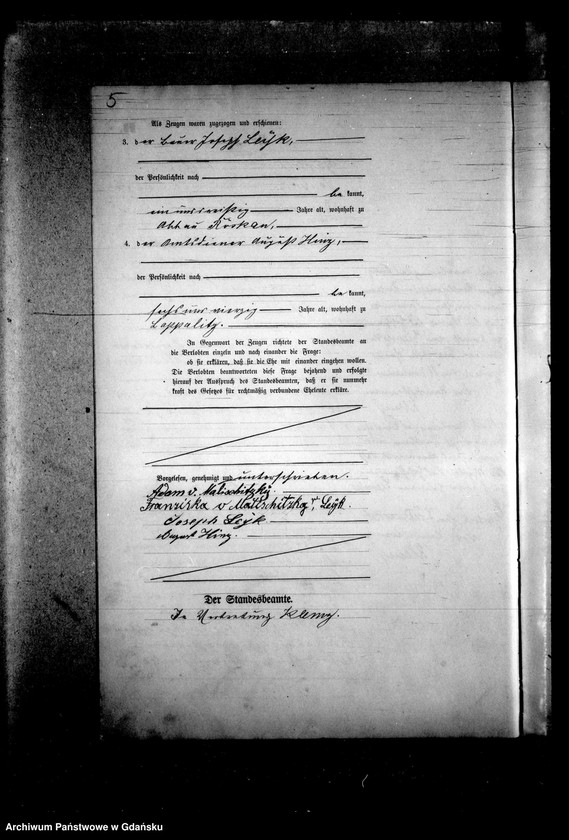 5
Als Zeugen waren zugezogen und erschienen:
3. der Bauer Joseph Leÿk,
der Persönlichkeit nach
be kannt,
einunddreißig Jahre alt, wohnhaft zu
Abbau
4. der Amtsdiener August Hinz,
der Persönlichkeit nach
be kannt,
sechsundvierzig Jahre alt, wohnhaft zu
Lappalitz.
In Gegenwart der Zeugen richtete der Standesbeamte an
die Verlobten einzeln und nach einander die Frage:
ob sie erklären, daß sie die Ehe mit einander eingehen wollen.
Die Verlobten beantworteten diese Frage bejahend und erfolgte
hierauf der Ausspruch des Standesbeamten, daß er sie nunmehr
kraft des Gesetzes für rechtmäßig verbundene Eheleute erkläre.
Vorgelesen, genehmigt und unterschrieben.
Adam v. Malischitzky.
Franziska v Malischitzky, Leÿk.
Joseph Leÿk
August Hinz.
Der Standesbeamte.
In Vertretung
Archiwum Państwowe w Gdańsku